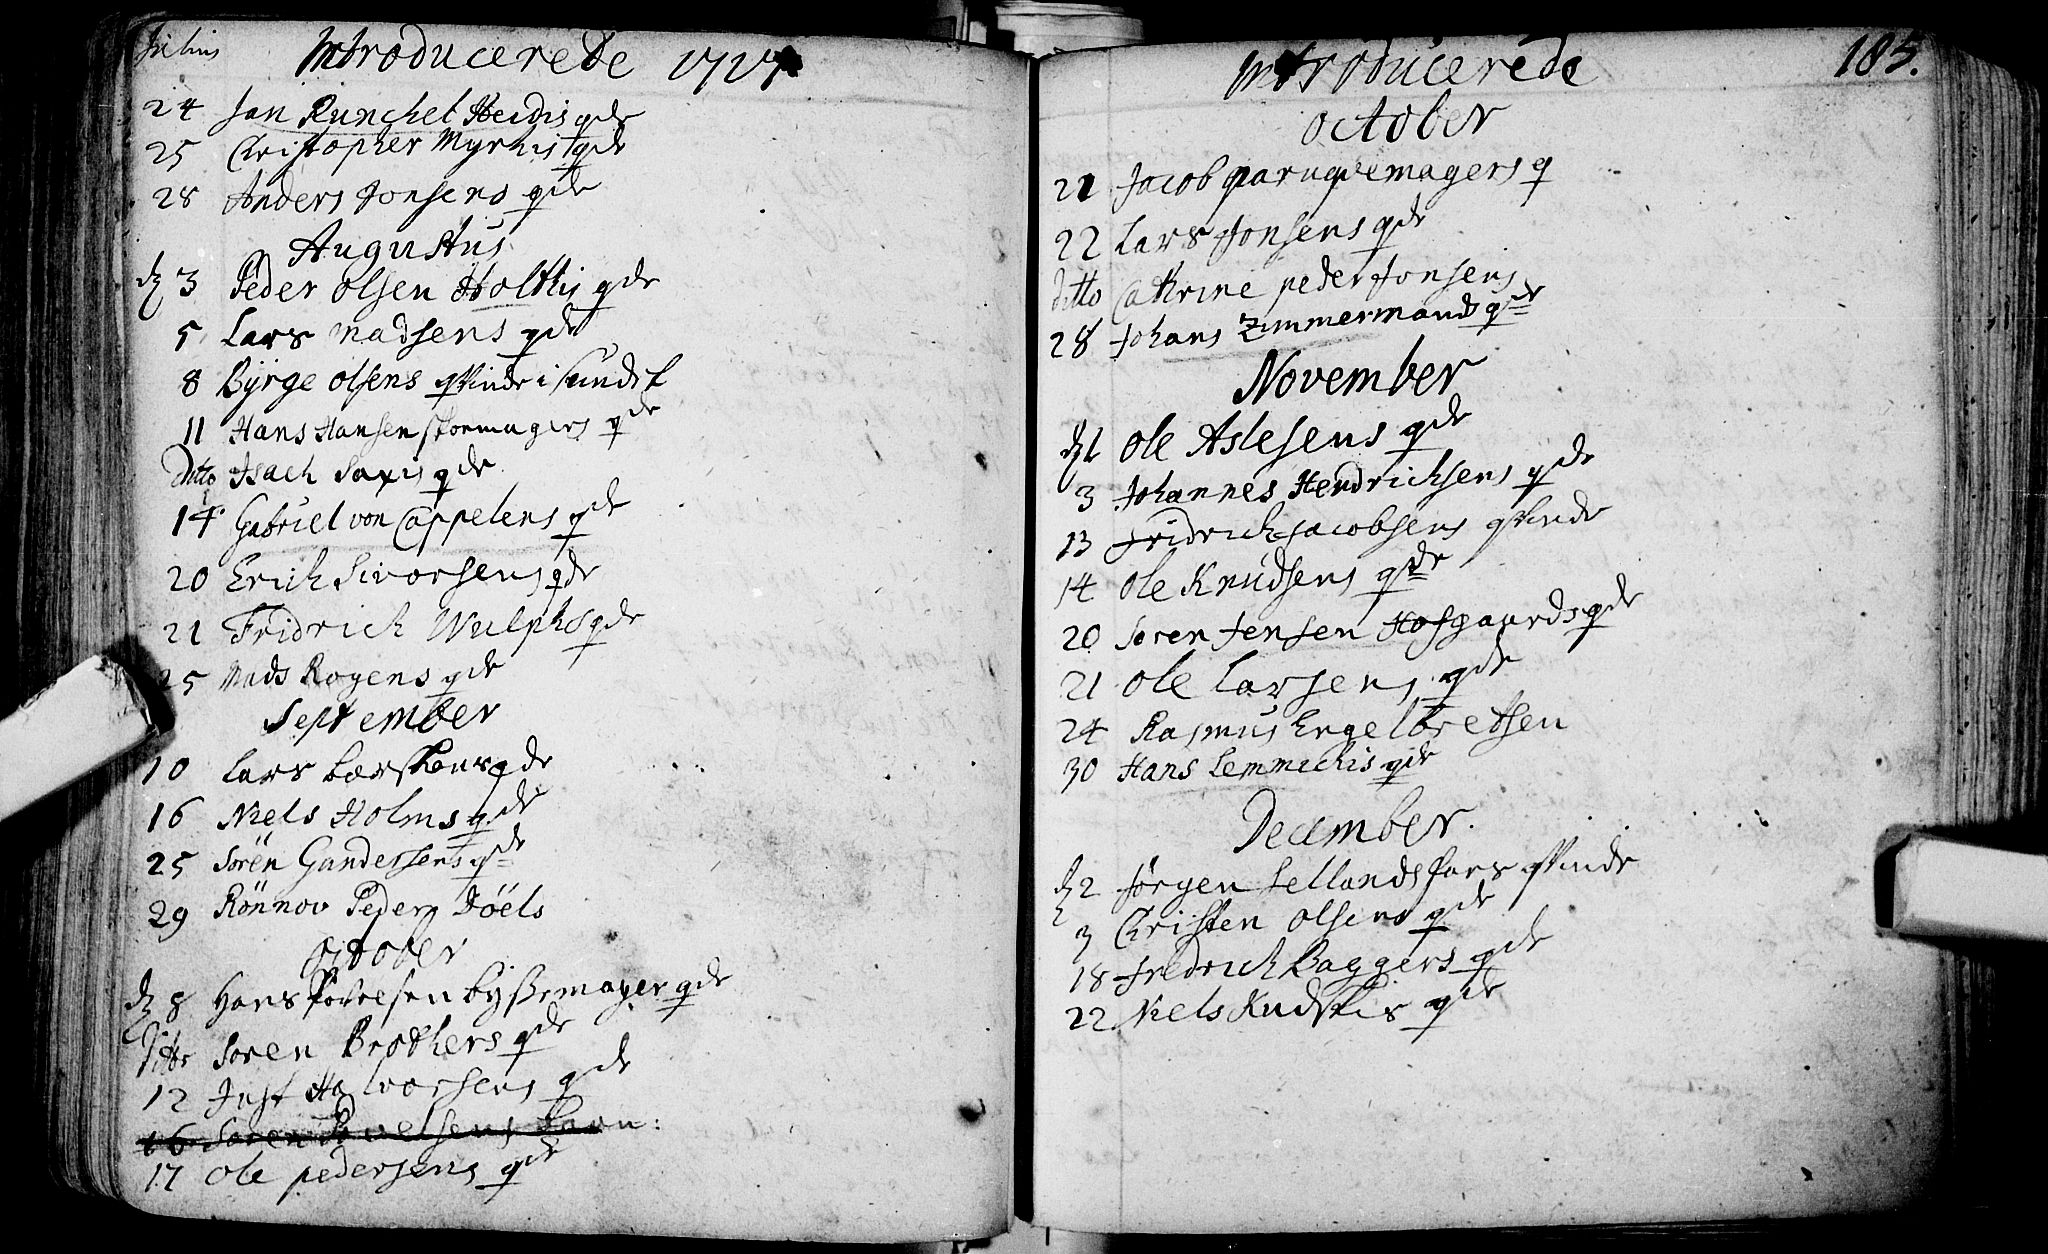 Julius Introducerede 1727
24 Jan Runchel Heidis qde
25 Christopher Myrhis qde
28 Anders Jonsens qde
Augustus
d 3 Peder Olsen Holthis qde
5 Lars Madsens qde
8 Byrge Olsens qvinde i sundet
11 Hans Hansen skomagers qde
Ditto Isach Saxis qde
14 Gabriel von Cappelens qde
20 Erich Sivorsens qde
21 Fridrich Wulphs qde
25 Mads Rogens qde
September
10 Lars qde
16 Niels Holms qde
25 Sorën Gundersens qde
29 Rönnov Peders Döels
October
d 8 Hans Povelsen byssemager qde
Ditto Soren Brothers qde
12 Just Halvorsens qde
16 Soren Povelsens barn:
17 Ole pedersens qde
Introducerede 185.
October
21 Jacob paruqvemagers q
22 Lars Jonsens qde
Ditto Cathrine peder Jonsens
28 Johans Zimmermands qde
November
d 1 Ole Aslesens qde
3 Johannes Hendrichsens qde
13 Fridrich Jacobsens qvinde
14 Ole Knudsens qde
20 Soren Jensen Hofgaards qde
21 Ole Larsens qde
24 Rasmus Engelbretsen
30 Hans Lemmichis qde
December.
d 2 Jörgen Sellandsfars qvinde
3 Christen Olsens qde
18 Fredrich Baggers qde
22 Niels Rudskis qde